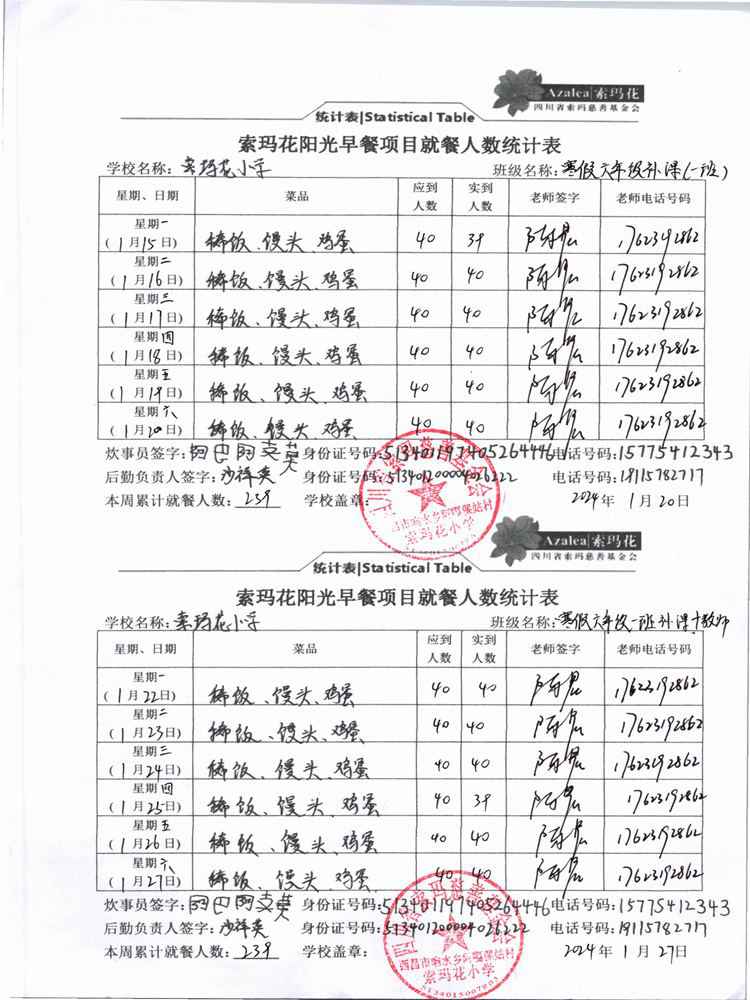 Azalea 索玛花
四川省索玛慈善基金会
统计表|Statistical Table
索玛花阳光早餐项目就餐人数统计表
学校名称：索玛花小学 班级名称：寒假六年级补课(一班)
星期、日期 菜品 应到人数 实到人数 老师签字 老师电话号码
星期一 (1月15日) 稀饭、馒头、鸡蛋 40 39 17623192862
星期二 (1月16日) 稀饭、馒头、鸡蛋 40 40 17623192862
星期三 (1月17日) 稀饭、馒头、鸡蛋 40 40 17623192862
星期四 (1月18日) 稀饭、馒头、鸡蛋 40 40 17623192862
星期五 (1月19日) 稀饭、馒头、鸡蛋 40 40 17623192862
星期六 (1月20日) 稀饭、馒头、鸡蛋 40 40 17623192862
炊事员签字：阿巴阿英 身份证号码： 电话号码：15775412343
后勤负责人签字：沙祥英 身份证号码： 电话号码：18115782717
本周累计就餐人数：239 学校盖章： 2024年1月20日
索玛花小学
Azalea 索玛花
四川省索玛慈善基金会
统计表|Statistical Table
索玛花阳光早餐项目就餐人数统计表
学校名称：索玛花小学 班级名称：寒假六年级一班补课+教师
星期、日期 菜品 应到人数 实到人数 老师签字 老师电话号码
星期一 (1月22日) 稀饭、馒头、鸡蛋 40 40 17623192862
星期二 (1月23日) 稀饭、馒头、鸡蛋 40 40 17623192862
星期三 (1月24日) 稀饭、馒头、鸡蛋 40 40 17623192862
星期四 (1月25日) 稀饭、馒头、鸡蛋 40 39 17623192862
星期五 (1月26日) 稀饭、馒头、鸡蛋 40 40 17623192862
星期六 (1月27日) 稀饭、馒头、鸡蛋 40 40 17623192862
炊事员签字：阿巴阿英 身份证号码： 电话号码：15775412343
后勤负责人签字：沙祥英 身份证号码： 电话号码：18115782717
本周累计就餐人数：239 学校盖章： 2024年1月27日
索玛花小学
5134015007803